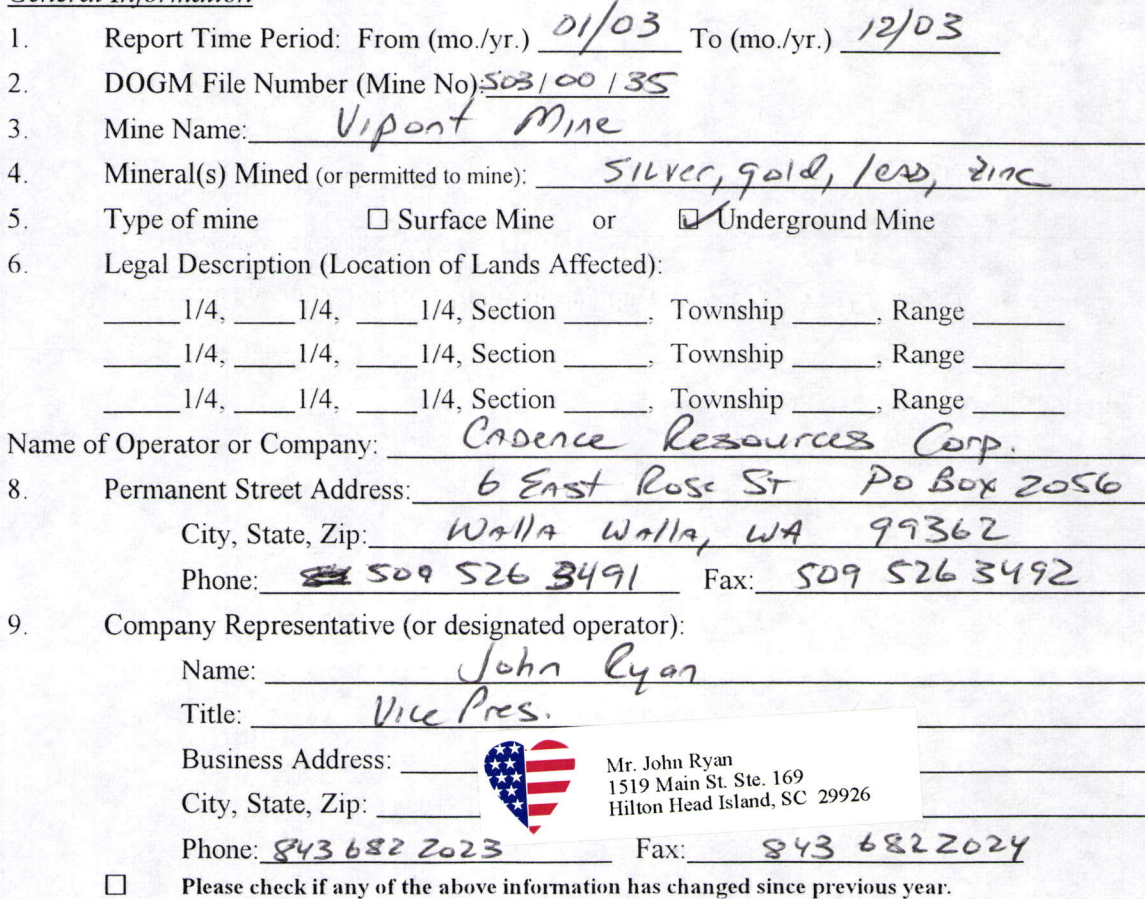 General Information
1. Report Time Period: From (mo./yr.) 01/03 To (mo./yr.) 12/03
2. DOGM File Number (Mine No) 503/00/35
3. Mine Name: Vipont Mine
4. Mineral(s) Mined (or permitted to mine): Silver, gold, lead, zinc
5. Type of mine ☐ Surface Mine or ☑ Underground Mine
6. Legal Description (Location of Lands Affected):
_____1/4, _____1/4, _____1/4, Section _____, Township _____, Range _____
_____1/4, _____1/4, _____1/4, Section _____, Township _____, Range _____
_____1/4, _____1/4, _____1/4, Section _____, Township _____, Range _____
Name of Operator or Company: Cadence Resources Corp.
8. Permanent Street Address: 6 East Rose St PO Box 2056
City, State, Zip: Walla Walla, WA 99362
Phone: 509 526 3491 Fax: 509 526 3492
9. Company Representative (or designated operator):
Name: John Ryan
Title: Vice Pres.
Business Address:
Mr. John Ryan
1519 Main St. Ste. 169
Hilton Head Island, SC 29926
City, State, Zip:
Phone: 843 682 2023 Fax: 843 682 2024
☐ Please check if any of the above information has changed since previous year.